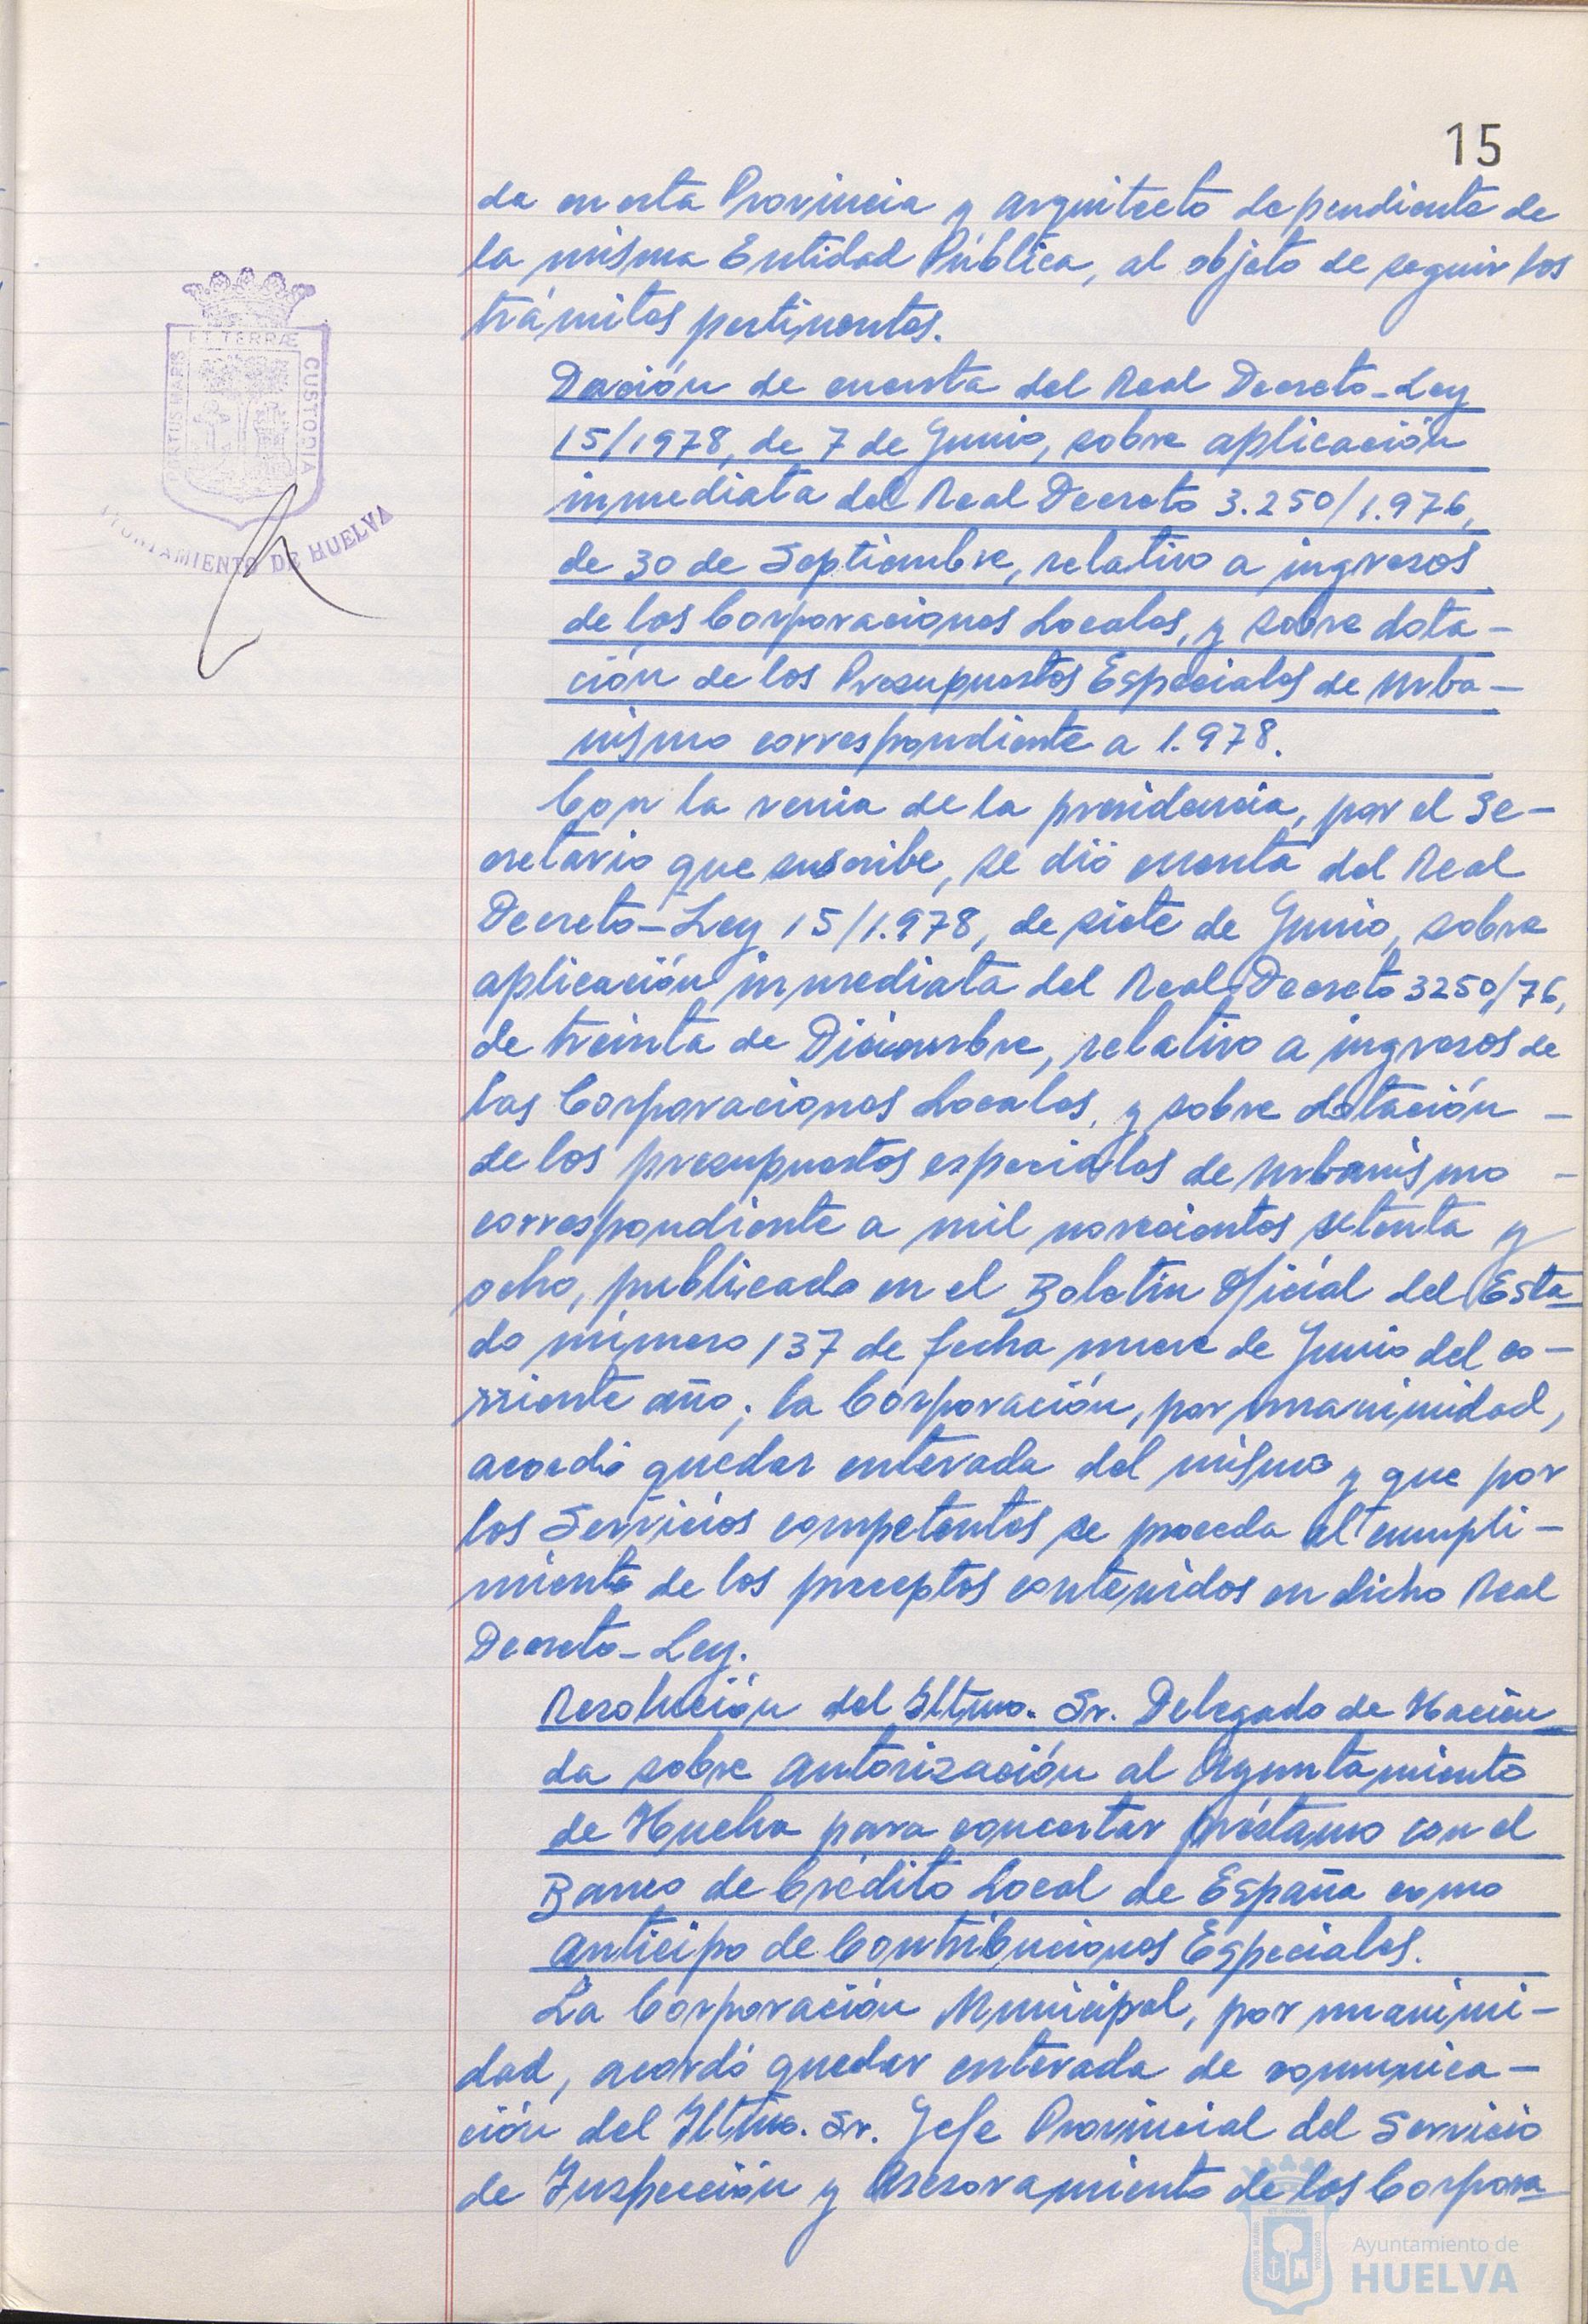 15
da en esta Provincia y arquitecto dependiente de
la misma Entidad Pública, al objeto de seguir los
trámites pertinentes.
Dación de cuenta del Real Decreto-Ley
15/1978, de 7 de Junio, sobre aplicación
inmediata del Real Decreto 3.250/1.976,
de 30 de Septiembre, relativo a ingresos
de las Corporaciones Locales, y sobre dota-
ción de los Presupuestos Especiales de Urba-
nismo correspondiente a 1.978.
Con la venia de la presidencia, por el Se-
cretario que suscribe, se dió cuenta del Real
Decreto-Ley 15/1.978, de siete de Junio, sobre
aplicación inmediata del Real Decreto 3250/76,
de treinta de Diciembre, relativo a ingresos de
las Corporaciones Locales, y sobre dotación -
de los presupuestos especiales de urbanismo -
correspondiente a mil novecientos setenta y
ocho, publicado en el Boletín Oficial del Esta-
do número 137 de fecha nueve de Junio del co-
rriente año; la Corporación, por unanimidad,
acordó quedar enterada del mismo y que por
los Servicios competentes se proceda al cumpli-
miento de los preceptos contenidos en dicho Real
Decreto-Ley.
Resolución del Iltmo. Sr. Delegado de Hacien-
da sobre autorización al Ayuntamiento
de Huelva para concertar préstamo con el
Banco de Crédito Local de España como
anticipo de Contribuciones Especiales.
La Corporación Municipal, por unanimi-
dad, acordó quedar enterada de comunica-
ción del Iltmo. Sr. Jefe Provincial del Servicio
de Inspección y Asesoramiento de las Corpora-
ET TERRÆ
PORTUS MARIS
CUSTODIA
AYUNTAMIENTO DE HUELVA
Ayuntamiento de
HUELVA